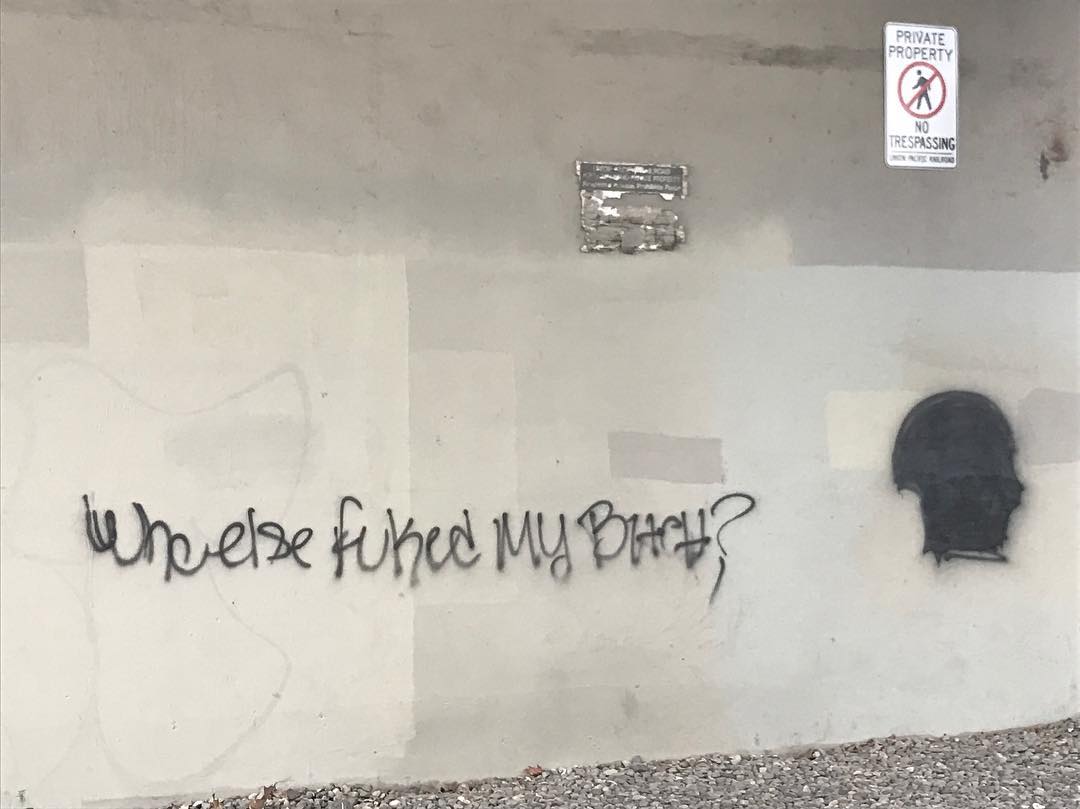 PRIVATE
PROPERTY
NO
TRESPASSING
UNION PACIFIC RAILROAD
Who else fuked My Bitch?